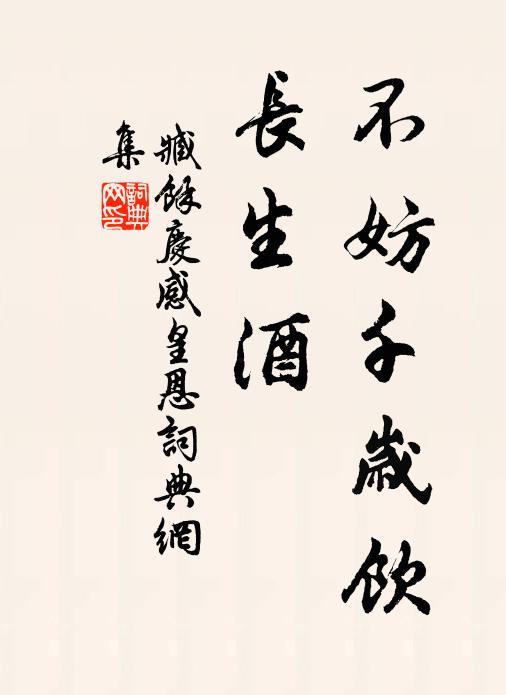 不妨千歲飲
長生酒
臧餘慶感皇恩詞典網
集
詞典
网印